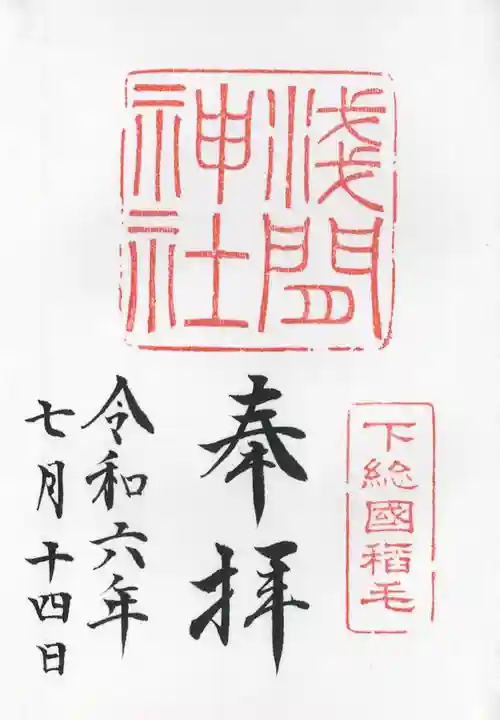 淺間
神社
下総國稲毛
奉拝
令和六年
七月十四日